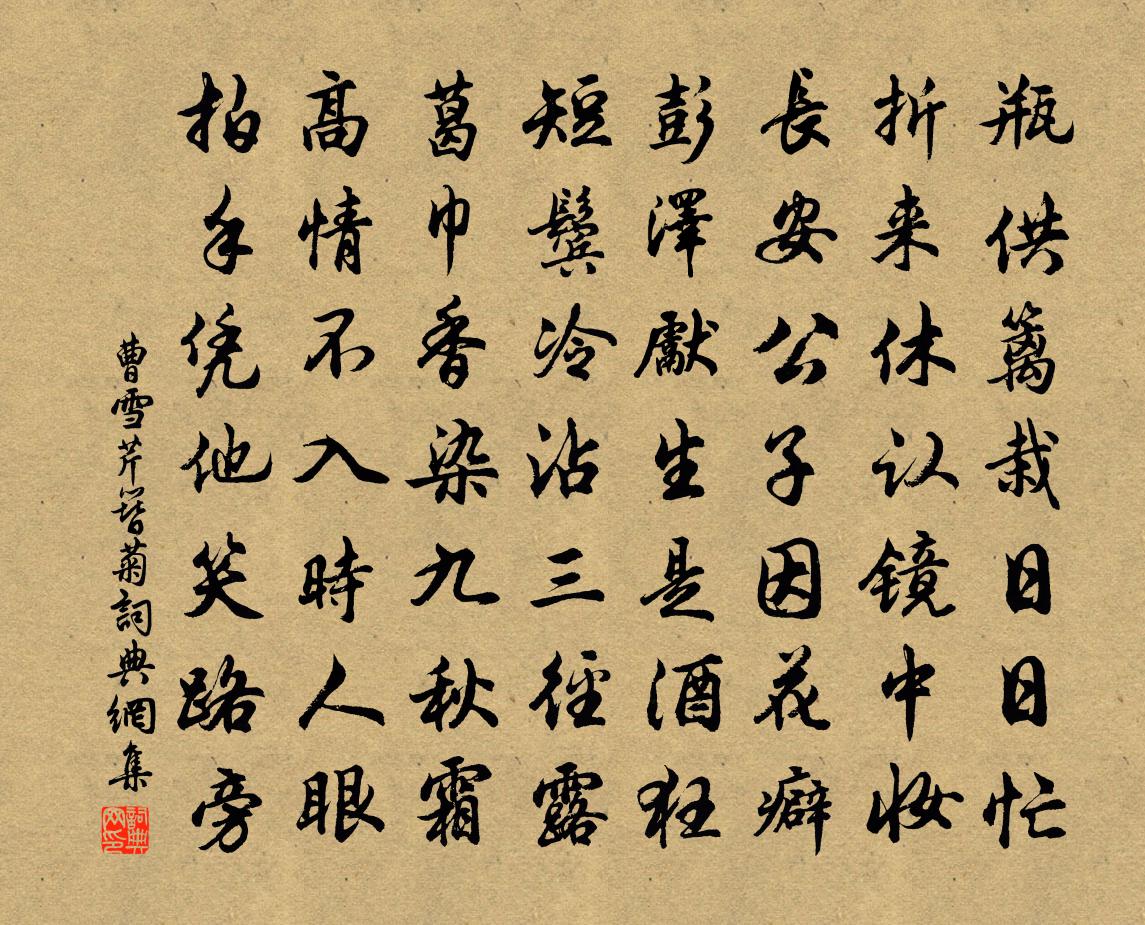 瓶供籬栽日日忙
折来休认镜中妆
長安公子因花癖
彭澤獻生是酒狂
短鬓冷沾三徑露
葛巾香染九秋霜
高情不入時人眼
拍手凭他笑路旁
曹雪芹簪菊詞典網集
詞典
网印